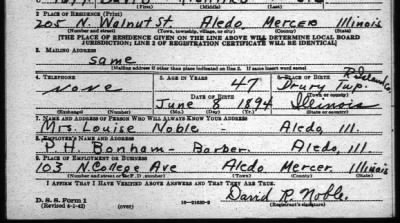 2. PLACE OF RESIDENCE (Print)
205 N. Walnut St. Aledo Mercer Illinois
(Number and street) (Town, township, village, or city) (County) (State)
[THE PLACE OF RESIDENCE GIVEN ON THE LINE ABOVE WILL DETERMINE LOCAL BOARD
JURISDICTION; LINE 2 OF REGISTRATION CERTIFICATE WILL BE IDENTICAL]
3. MAILING ADDRESS
same
[Mailing address if other than place indicated on line 2. If same insert word same]
4. TELEPHONE 5. AGE IN YEARS 6. PLACE OF BIRTH
none 47 Drury Twp. R. Island Co.
DATE OF BIRTH
June 8 1894 Illinois
(Exchange) (Number) (Mo.) (Day) (Yr.) (State or country)
7. NAME AND ADDRESS OF PERSON WHO WILL ALWAYS KNOW YOUR ADDRESS
Mrs. Louise Noble - Aledo, Ill.
8. EMPLOYER'S NAME AND ADDRESS
P. H. Bonham - Barber. Aledo, Ill.
9. PLACE OF EMPLOYMENT OR BUSINESS
103 N. College Ave Aledo Mercer Illinois
(Number and street or R. F. D. number) (Town) (County) (State)
I AFFIRM THAT I HAVE VERIFIED ABOVE ANSWERS AND THAT THEY ARE TRUE.
D. S. S. Form 1
(Revised 4-1-42) (over) 16-21630-2 David R. Noble.
(Registrant's signature)